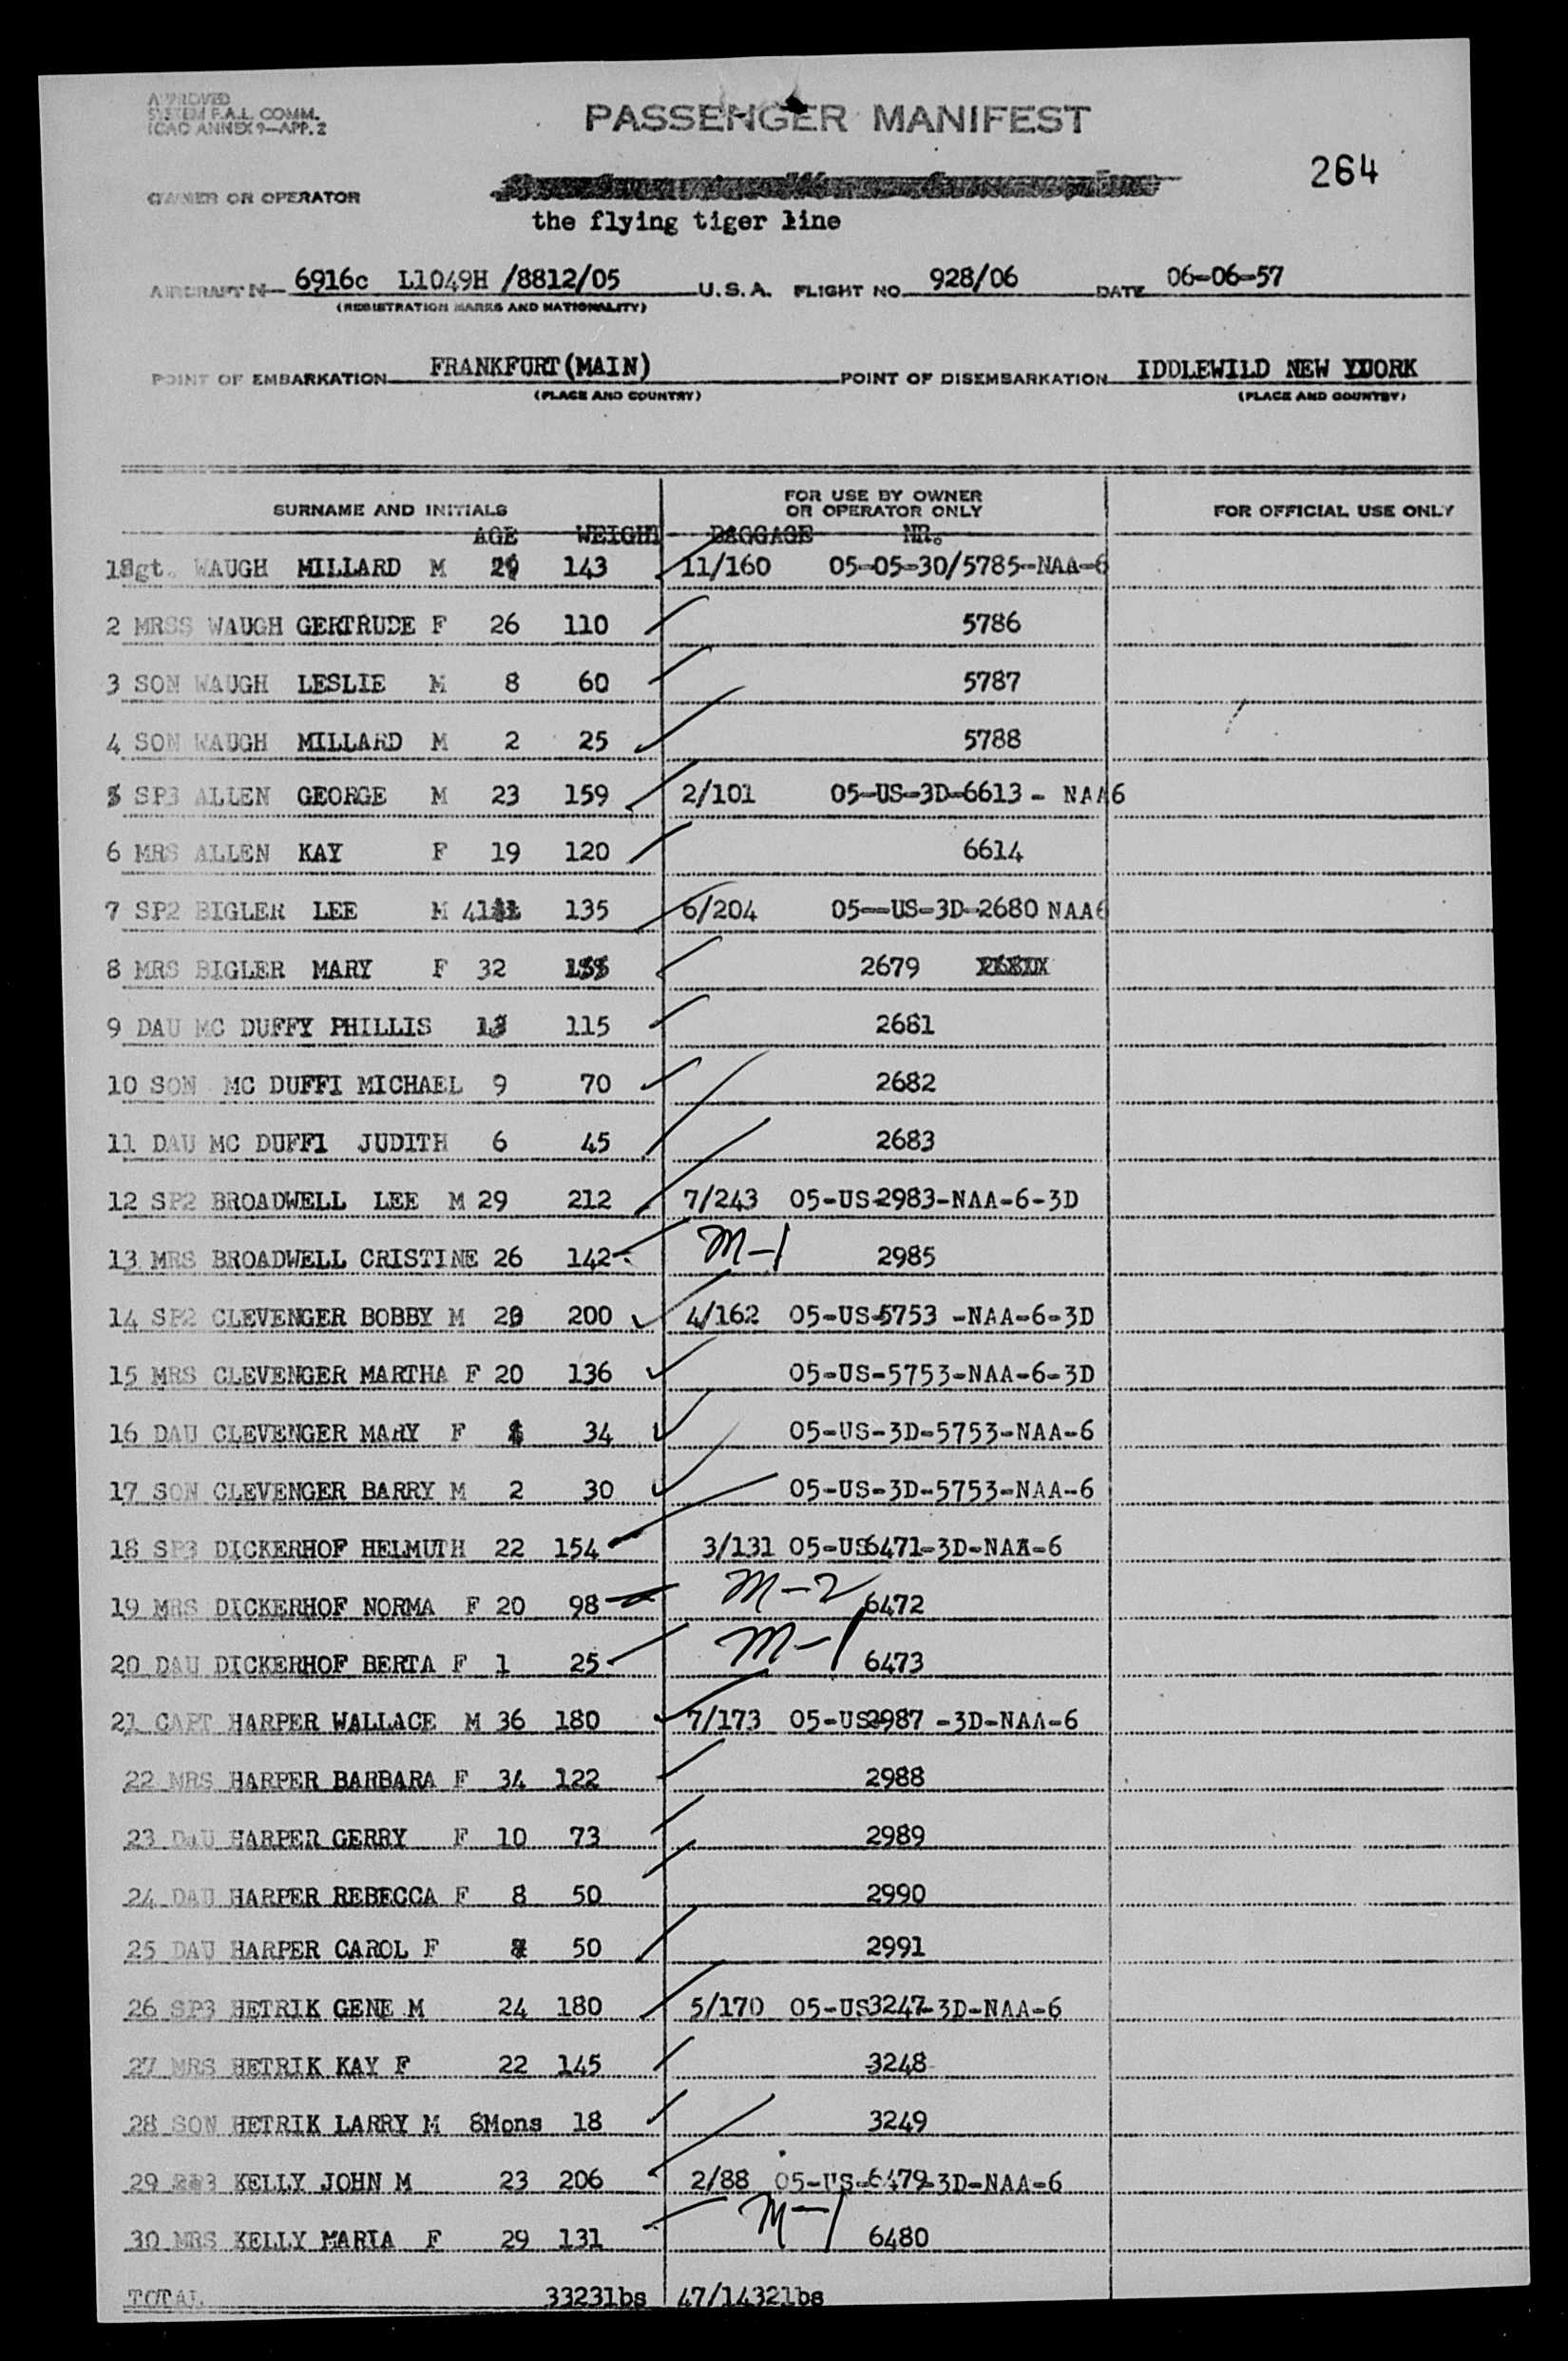 APPROVED
SYSTEM F.A.L. COMM.
ICAO ANNEX 9—APP. 2
PASSENGER MANIFEST
264
OWNER OR OPERATOR
the flying tiger line
AIRCRAFT N 6916c L1049H /8812/05 U.S.A. FLIGHT NO. 928/06 DATE 06-06-57
(REGISTRATION MARKS AND NATIONALITY)
POINT OF EMBARKATION FRANKFURT(MAIN) POINT OF DISEMBARKATION IDDLEWILD NEW YORK
(PLACE AND COUNTRY) (PLACE AND COUNTRY)
SURNAME AND INITIALS FOR USE BY OWNER OR OPERATOR ONLY FOR OFFICIAL USE ONLY
AGE WEIGHT BAGGAGE NR.
1Sgt. WAUGH MILLARD M 143 11/160 05-05-30/5785-NAA-6
2 MRSS WAUGH GERTRUDE F 26 110 5786
3 SON WAUGH LESLIE M 8 60 5787
4 SON WAUGH MILLARD M 2 25 5788
5 SP3 ALLEN GEORGE M 23 159 2/101 05-US-3D-6613 - NAA6
6 MRS ALLEN KAY F 19 120 6614
7 SP2 BIGLER LEE M 41 135 6/204 05--US-3D-2680 NAA6
8 MRS BIGLER MARY F 32 2679
9 DAU MC DUFFY PHILLIS 13 115 2681
10 SON MC DUFFI MICHAEL 9 70 2682
11 DAU MC DUFFI JUDITH 6 45 2683
12 SP2 BROADWELL LEE M 29 212 7/243 05-US-2983-NAA-6-3D
13 MRS BROADWELL CRISTINE 26 142 M-1 2985
14 SP2 CLEVENGER BOBBY M 200 4/162 05-US-5753 -NAA-6-3D
15 MRS CLEVENGER MARTHA F 20 136 05-US-5753-NAA-6-3D
16 DAU CLEVENGER MARY F 34 05-US-3D-5753-NAA-6
17 SON CLEVENGER BARRY M 2 30 05-US-3D-5753-NAA-6
18 SP3 DICKERHOF HELMUTH 22 154 3/131 05-US6471-3D-NAA-6
19 MRS DICKERHOF NORMA F 20 98 M-2 6472
20 DAU DICKERHOF BERTA F 1 25 M-1 6473
21 CAPT HARPER WALLACE M 36 180 7/173 05-US2987 -3D-NAA-6
22 MRS HARPER BARBARA F 34 122 2988
23 DAU HARPER GERRY F 10 73 2989
24 DAU HARPER REBECCA F 8 50 2990
25 DAU HARPER CAROL F 50 2991
26 SP3 HETRIK GENE M 24 180 5/170 05-US3247-3D-NAA-6
27 MRS HETRIK KAY F 22 145 3248
28 SON HETRIK LARRY M 8Mons 18 3249
29 SP3 KELLY JOHN M 23 206 2/88 05-US-6479-3D-NAA-6
30 MRS KELLY MARIA F 29 131 M-1 6480
TOTAL 3323lbs 47/1432lbs